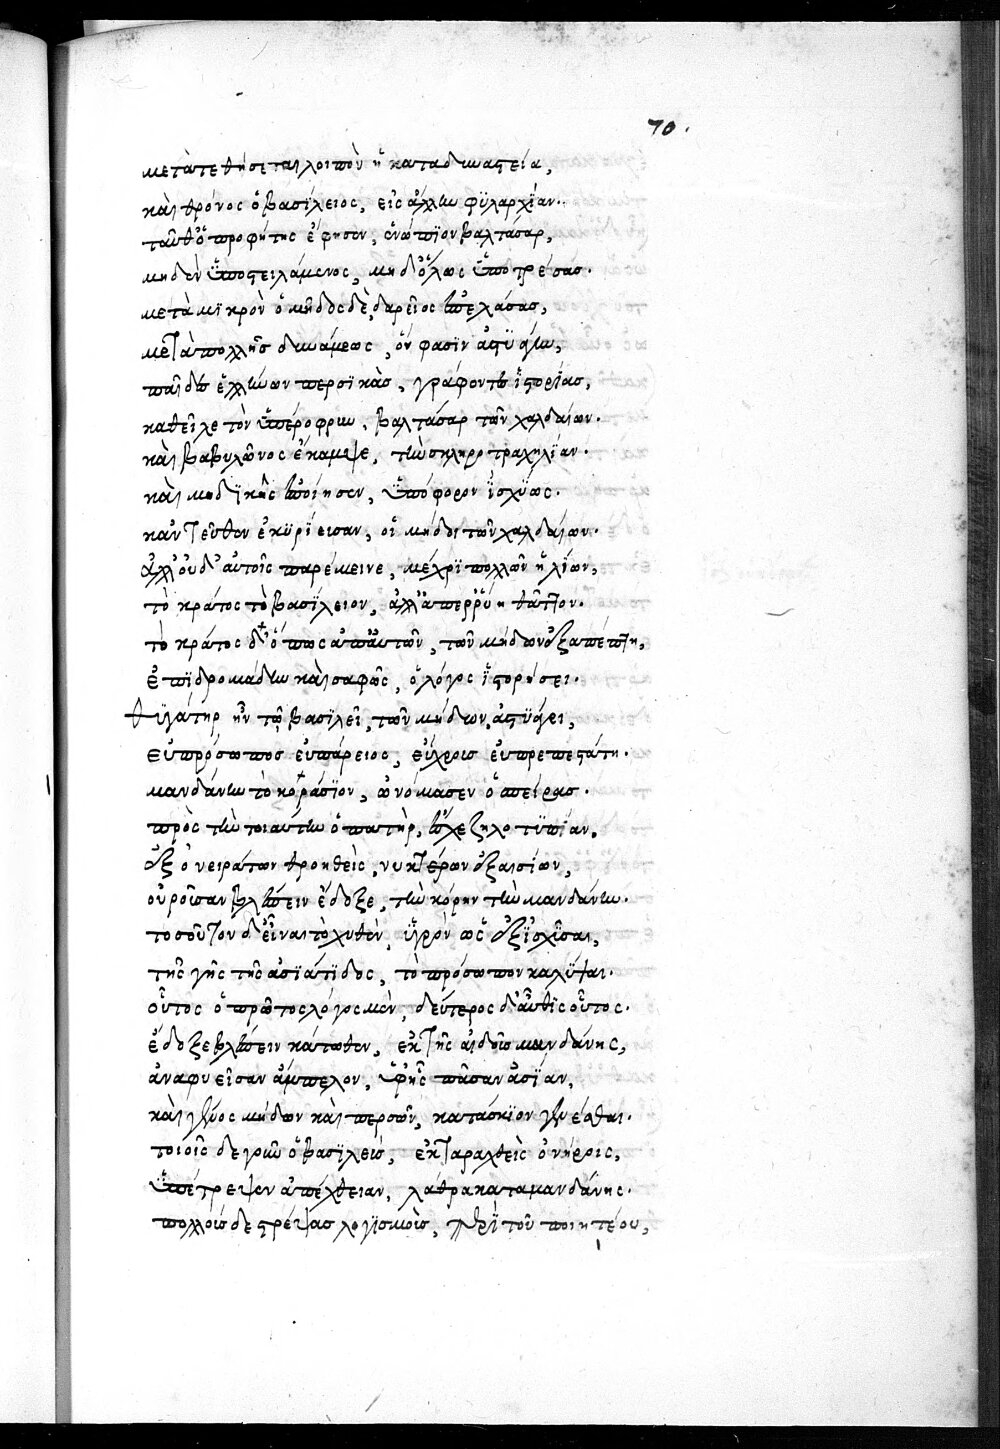 70.
μετατεθήσεται λοιπὸν ἡ καταδυναστεία,
καὶ θρόνος ὁ βασίλειος, εἰς ἄλλην φυλαρχίαν·
ταῦθ' ὁ προφήτης ἔφησεν, ἐνώπιον βαλτάσαρ,
μηδὲν ὑποστειλάμενος, μηδ' ὅλως ὑποτρέσας·
μετὰ μικρὸν ὁ μῆδος δὲ δαρεῖος ἐπελάσας,
μετὰ πολλῆς δυνάμεως, ὅν φασιν ἀστυάγην,
παῖδες ἑλλήνων περσικὰς, γράφοντες ἱστορίας,
καθεῖλε τὸν ὑπέροφρυν, βαλτάσαρ τῶν χαλδαίων·
καὶ βαβυλῶνος ἔκαμψε, τὴν σκληροτραχηλίαν·
καὶ μηδικῆς ἐποίησεν, ὑπόφορον ἰσχύος·
κἀντεῦθεν ἐκυρίευσαν, οἱ μῆδοι τῶν χαλδαίων·
ἀλλ' οὐδ' αὐτοῖς παρέμεινε, μέχρι πολλῶν ἡλίων,
τὸ κράτος τὸ βασίλειον, ἀλλ' ἀπερρύη θᾶττον·
τὸ κράτος δ' ὅπως ἀπ' αὐτῶν, τῶν μήδων ἐξαπέπτη,
ἐπιδρομάδην καὶ σαφῶς, ὁ λόγος ἱστορήσει·
θυγάτηρ ἦν τῷ βασιλεῖ, τῶν μήδων ἀστυάγει,
εὐπρόσωπος εὐπάρειος, εὔχρους εὐπρεπεστάτη·
μανδάνην τὸ κοράσιον, ὠνόμασεν ὁ σπείρας·
πρὸς τὴν τοιαύτην ὁ πατὴρ, ἔσχε ζηλοτυπίαν,
ἐξ ὀνειράτων θροηθεὶς, νυκτέρων ἐξαισίων,
οὐροῦσαν βλέπειν ἔδοξε, τὴν κόρην τὴν μανδάνην·
τοσοῦτον δ' εἶναι τὸ χυθὲν, ὑγρὸν ὡς ἐξισχῦσαι,
τῆς γῆς τῆς ἀσιάτιδος, τὸ πρόσωπον καλύψαι·
οὗτος ὁ πρῶτος λόγος μὲν, δεύτερος δ' αὖθις οὗτος·
ἔδοξε βλέπειν κάτωθεν, ἐκ τῆς αἰδοῦς μανδάνης,
ἀναφυεῖσαν ἄμπελον, ὑφ' ἧς πᾶσαν ἀσίαν,
καὶ γένος μήδων καὶ περσῶν, κατάσκιον γενέσθαι·
τοίοις δ' ἐγρῶν ὁ βασιλεὺς, ἐκταραχθεὶς ὀνείροις,
ὑπέτρεψεν ἀπέχθειαν, λάθρα κατὰ μανδάνης·
πολλοὺς δὲ στρέψας λογισμοὺς, περὶ τοῦ ποιητέου,